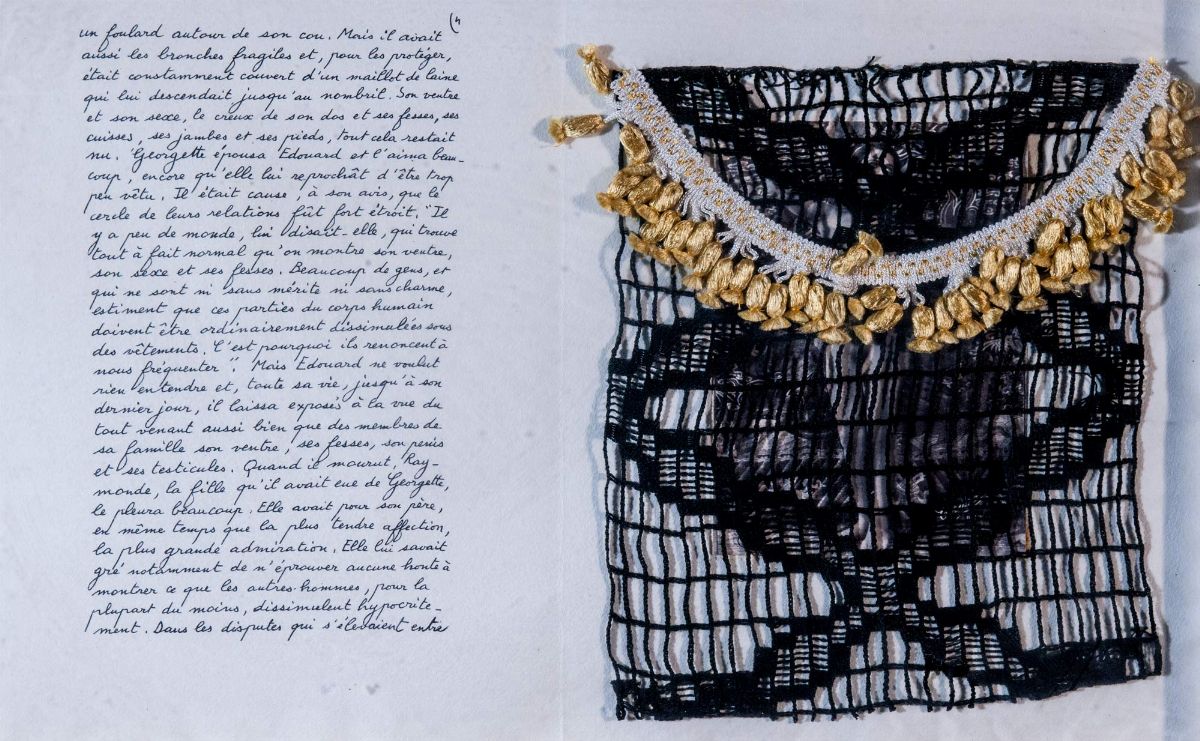 (4
un foulard autour de son cou. Mais il avait
aussi les bronches fragiles et, pour les protéger,
était constamment couvert d'un maillot de laine
qui lui descendait jusqu'au nombril. Son ventre
et son sexe, le creux de son dos et ses fesses, ses
cuisses, ses jambes et ses pieds, tout cela restait
nu. Georgette épousa Edouard et l'aima beau-
coup, encore qu'elle lui reprochât d'être trop
peu vêtu. Il était cause, à son avis, que le
cercle de leurs relations fût fort étroit. "Il
y a peu de monde, lui disait-elle, qui trouve
tout à fait normal qu'on montre son ventre,
son sexe et ses fesses. Beaucoup de gens, et
qui ne sont ni sans mérite ni sans charme,
estiment que ces parties du corps humain
doivent être ordinairement dissimulées sous
des vêtements. C'est pourquoi ils renoncent à
nous fréquenter". Mais Edouard ne voulut
rien entendre et, toute sa vie, jusqu'à son
dernier jour, il laissa exposés à la vue du
tout venant aussi bien que des membres de
sa famille son ventre, ses fesses, son penis
et ses testicules. Quand il mourut, Ray-
monde, la fille qu'il avait eue de Georgette,
le pleura beaucoup. Elle avait pour son père,
en même temps que la plus tendre affection,
la plus grande admiration. Elle lui savait
gré notamment de n'éprouver aucune honte à
montrer ce que les autres hommes, pour la
plupart du moins, dissimulent hypocrite-
ment. Dans les disputes qui s'élevaient entre